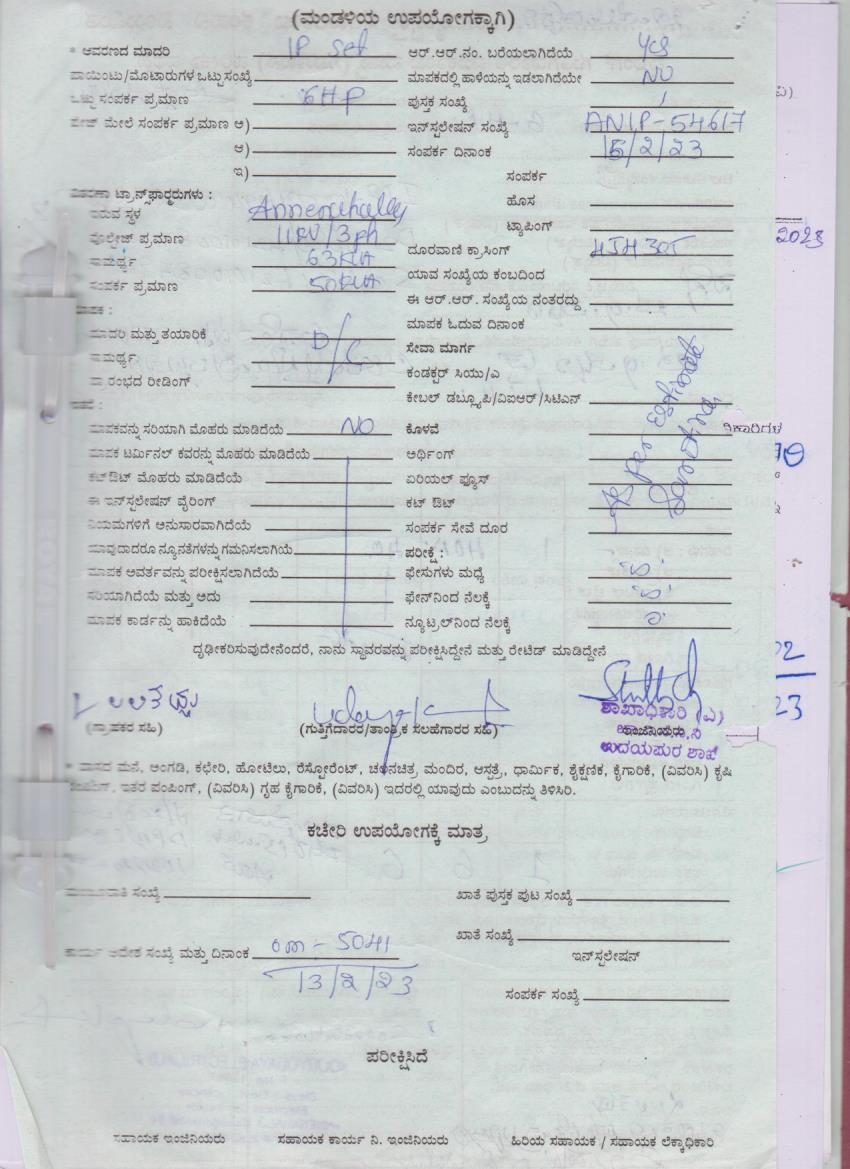 (ಮಂಡಳಿಯ ಉಪಯೋಗಕ್ಕಾಗಿ)
* ಆವರಣದ ಮಾದರಿ IP Set ಆರ್.ಆರ್.ನಂ. ಬರೆಯಲಾಗಿದೆಯೆ yes
ಪಾಯಿಂಟು/ಮೊಟಾರುಗಳ ಒಟ್ಟು ಸಂಖ್ಯೆ ಮಾಪಕದಲ್ಲಿ ಹಾಳೆಯನ್ನು ಇಡಲಾಗಿದೆಯೇ NO
ಒಟ್ಟು ಸಂಪರ್ಕ ಪ್ರಮಾಣ 6HP ಪುಸ್ತಕ ಸಂಖ್ಯೆ /
ಮೇಲೆ ಸಂಪರ್ಕ ಪ್ರಮಾಣ ಅ) ಇನ್‌ಸ್ಟಲೇಷನ್ ಸಂಖ್ಯೆ ANIP-54617
ಆ) ಸಂಪರ್ಕ ದಿನಾಂಕ 15/2/23
ಇ) ಸಂಪರ್ಕ
ಟ್ರಾನ್ಸ್‌ಫಾರ್ಮರುಗಳು : ಹೊಸ
ಇರುವ ಸ್ಥಳ ಟ್ಯಾಪಿಂಗ್
ವೋಲ್ಟೇಜ್ ಪ್ರಮಾಣ 11KV/3ph ದೂರವಾಣಿ ಕ್ರಾಸಿಂಗ್
ಸಾಮರ್ಥ್ಯ 63KVA ಯಾವ ಸಂಖ್ಯೆಯ ಕಂಬದಿಂದ
ಸಂಪರ್ಕ ಪ್ರಮಾಣ 50KVA ಈ ಆರ್.ಆರ್. ಸಂಖ್ಯೆಯ ನಂತರದ್ದು
ಮಾಪಕ : ಮಾಪಕ ಓದುವ ದಿನಾಂಕ
ಮಾದರಿ ಮತ್ತು ತಯಾರಿಕೆ D/C ಸೇವಾ ಮಾರ್ಗ
ಸಾಮರ್ಥ್ಯ ಕಂಡಕ್ಟರ್ ಸಿಯು/ಎ
ಪ್ರಾರಂಭದ ರೀಡಿಂಗ್ ಕೇಬಲ್ ಡಬ್ಲ್ಯೂಪಿ/ವಿಐಆರ್/ಸಿಟಿಎಸ್
ಮಾಪಕವನ್ನು ಸರಿಯಾಗಿ ಮೊಹರು ಮಾಡಿದೆಯೆ NO ಕೊಳವೆ
ಮಾಪಕ ಟರ್ಮಿನಲ್ ಕವರನ್ನು ಮೊಹರು ಮಾಡಿದೆಯೆ ಅರ್ಥಿಂಗ್
ಕಟ್‌ಔಟ್ ಮೊಹರು ಮಾಡಿದೆಯೆ ಏರಿಯಲ್ ಫ್ಯೂಸ್
ಈ ಇನ್‌ಸ್ಟಲೇಷನ್ ವೈರಿಂಗ್ ಕಟ್ ಔಟ್
ನಿಯಮಗಳಿಗೆ ಅನುಸಾರವಾಗಿದೆಯೆ ಸಂಪರ್ಕ ಸೇವೆ ದೂರ
ಯಾವುದಾದರೂ ನ್ಯೂನತೆಗಳನ್ನು ಗಮನಿಸಲಾಗಿಯೆ ಪರೀಕ್ಷೆ :
ಮಾಪಕ ಅವರ್ತವನ್ನು ಪರೀಕ್ಷಿಸಲಾಗಿದೆಯೆ ಫೇಸುಗಳು ಮಧ್ಯೆ
ಸರಿಯಾಗಿದೆಯೆ ಮತ್ತು ಅದು ಫೇಸ್‌ನಿಂದ ನೆಲಕ್ಕೆ
ಮಾಪಕ ಕಾರ್ಡನ್ನು ಹಾಕಿದೆಯೆ ನ್ಯೂಟ್ರಲ್‌ನಿಂದ ನೆಲಕ್ಕೆ
As per estimate
ದೃಢೀಕರಿಸುವುದೇನೆಂದರೆ, ನಾನು ಸ್ಥಾವರವನ್ನು ಪರೀಕ್ಷಿಸಿದ್ದೇನೆ ಮತ್ತು ರೇಟಿಡ್ ಮಾಡಿದ್ದೇನೆ
ಶಾಖಾಧಿಕಾರಿ (ವಿ)
(ಗ್ರಾಹಕರ ಸಹಿ) (ಗುತ್ತಿಗೆದಾರರ/ತಾಂತ್ರಿಕ ಸಲಹೆಗಾರರ ಸಹಿ) ಇಂಜಿನಿಯರು
ಉದಯಪುರ ಶಾಖೆ
* ವಾಸದ ಮನೆ, ಅಂಗಡಿ, ಕಛೇರಿ, ಹೋಟಲು, ರೆಸ್ಟೋರೆಂಟ್, ಚಲನಚಿತ್ರ ಮಂದಿರ, ಆಸ್ಪತ್ರೆ, ಧಾರ್ಮಿಕ, ಶೈಕ್ಷಣಿಕ, ಕೈಗಾರಿಕೆ, (ವಿವರಿಸಿ) ಕೃಷಿ
ಪಂಪಿಂಗ್, ಇತರ ಪಂಪಿಂಗ್, (ವಿವರಿಸಿ) ಗೃಹ ಕೈಗಾರಿಕೆ, (ವಿವರಿಸಿ) ಇದರಲ್ಲಿ ಯಾವುದು ಎಂಬುದನ್ನು ತಿಳಿಸಿರಿ.
ಕಚೇರಿ ಉಪಯೋಗಕ್ಕೆ ಮಾತ್ರ
ಸಂಖ್ಯೆ ಖಾತೆ ಪುಸ್ತಕ ಪುಟ ಸಂಖ್ಯೆ
ಖಾತೆ ಸಂಖ್ಯೆ
ಕಾರ್ಯ ಆದೇಶ ಸಂಖ್ಯೆ ಮತ್ತು ದಿನಾಂಕ om - 5041 ಇನ್‌ಸ್ಟಲೇಷನ್
13/2/23 ಸಂಪರ್ಕ ಸಂಖ್ಯೆ
ಪರೀಕ್ಷಿಸಿದೆ
ಸಹಾಯಕ ಇಂಜಿನಿಯರು ಸಹಾಯಕ ಕಾರ್ಯ ನಿ. ಇಂಜಿನಿಯರು ಹಿರಿಯ ಸಹಾಯಕ / ಸಹಾಯಕ ಲೆಕ್ಕಾಧಿಕಾರಿ